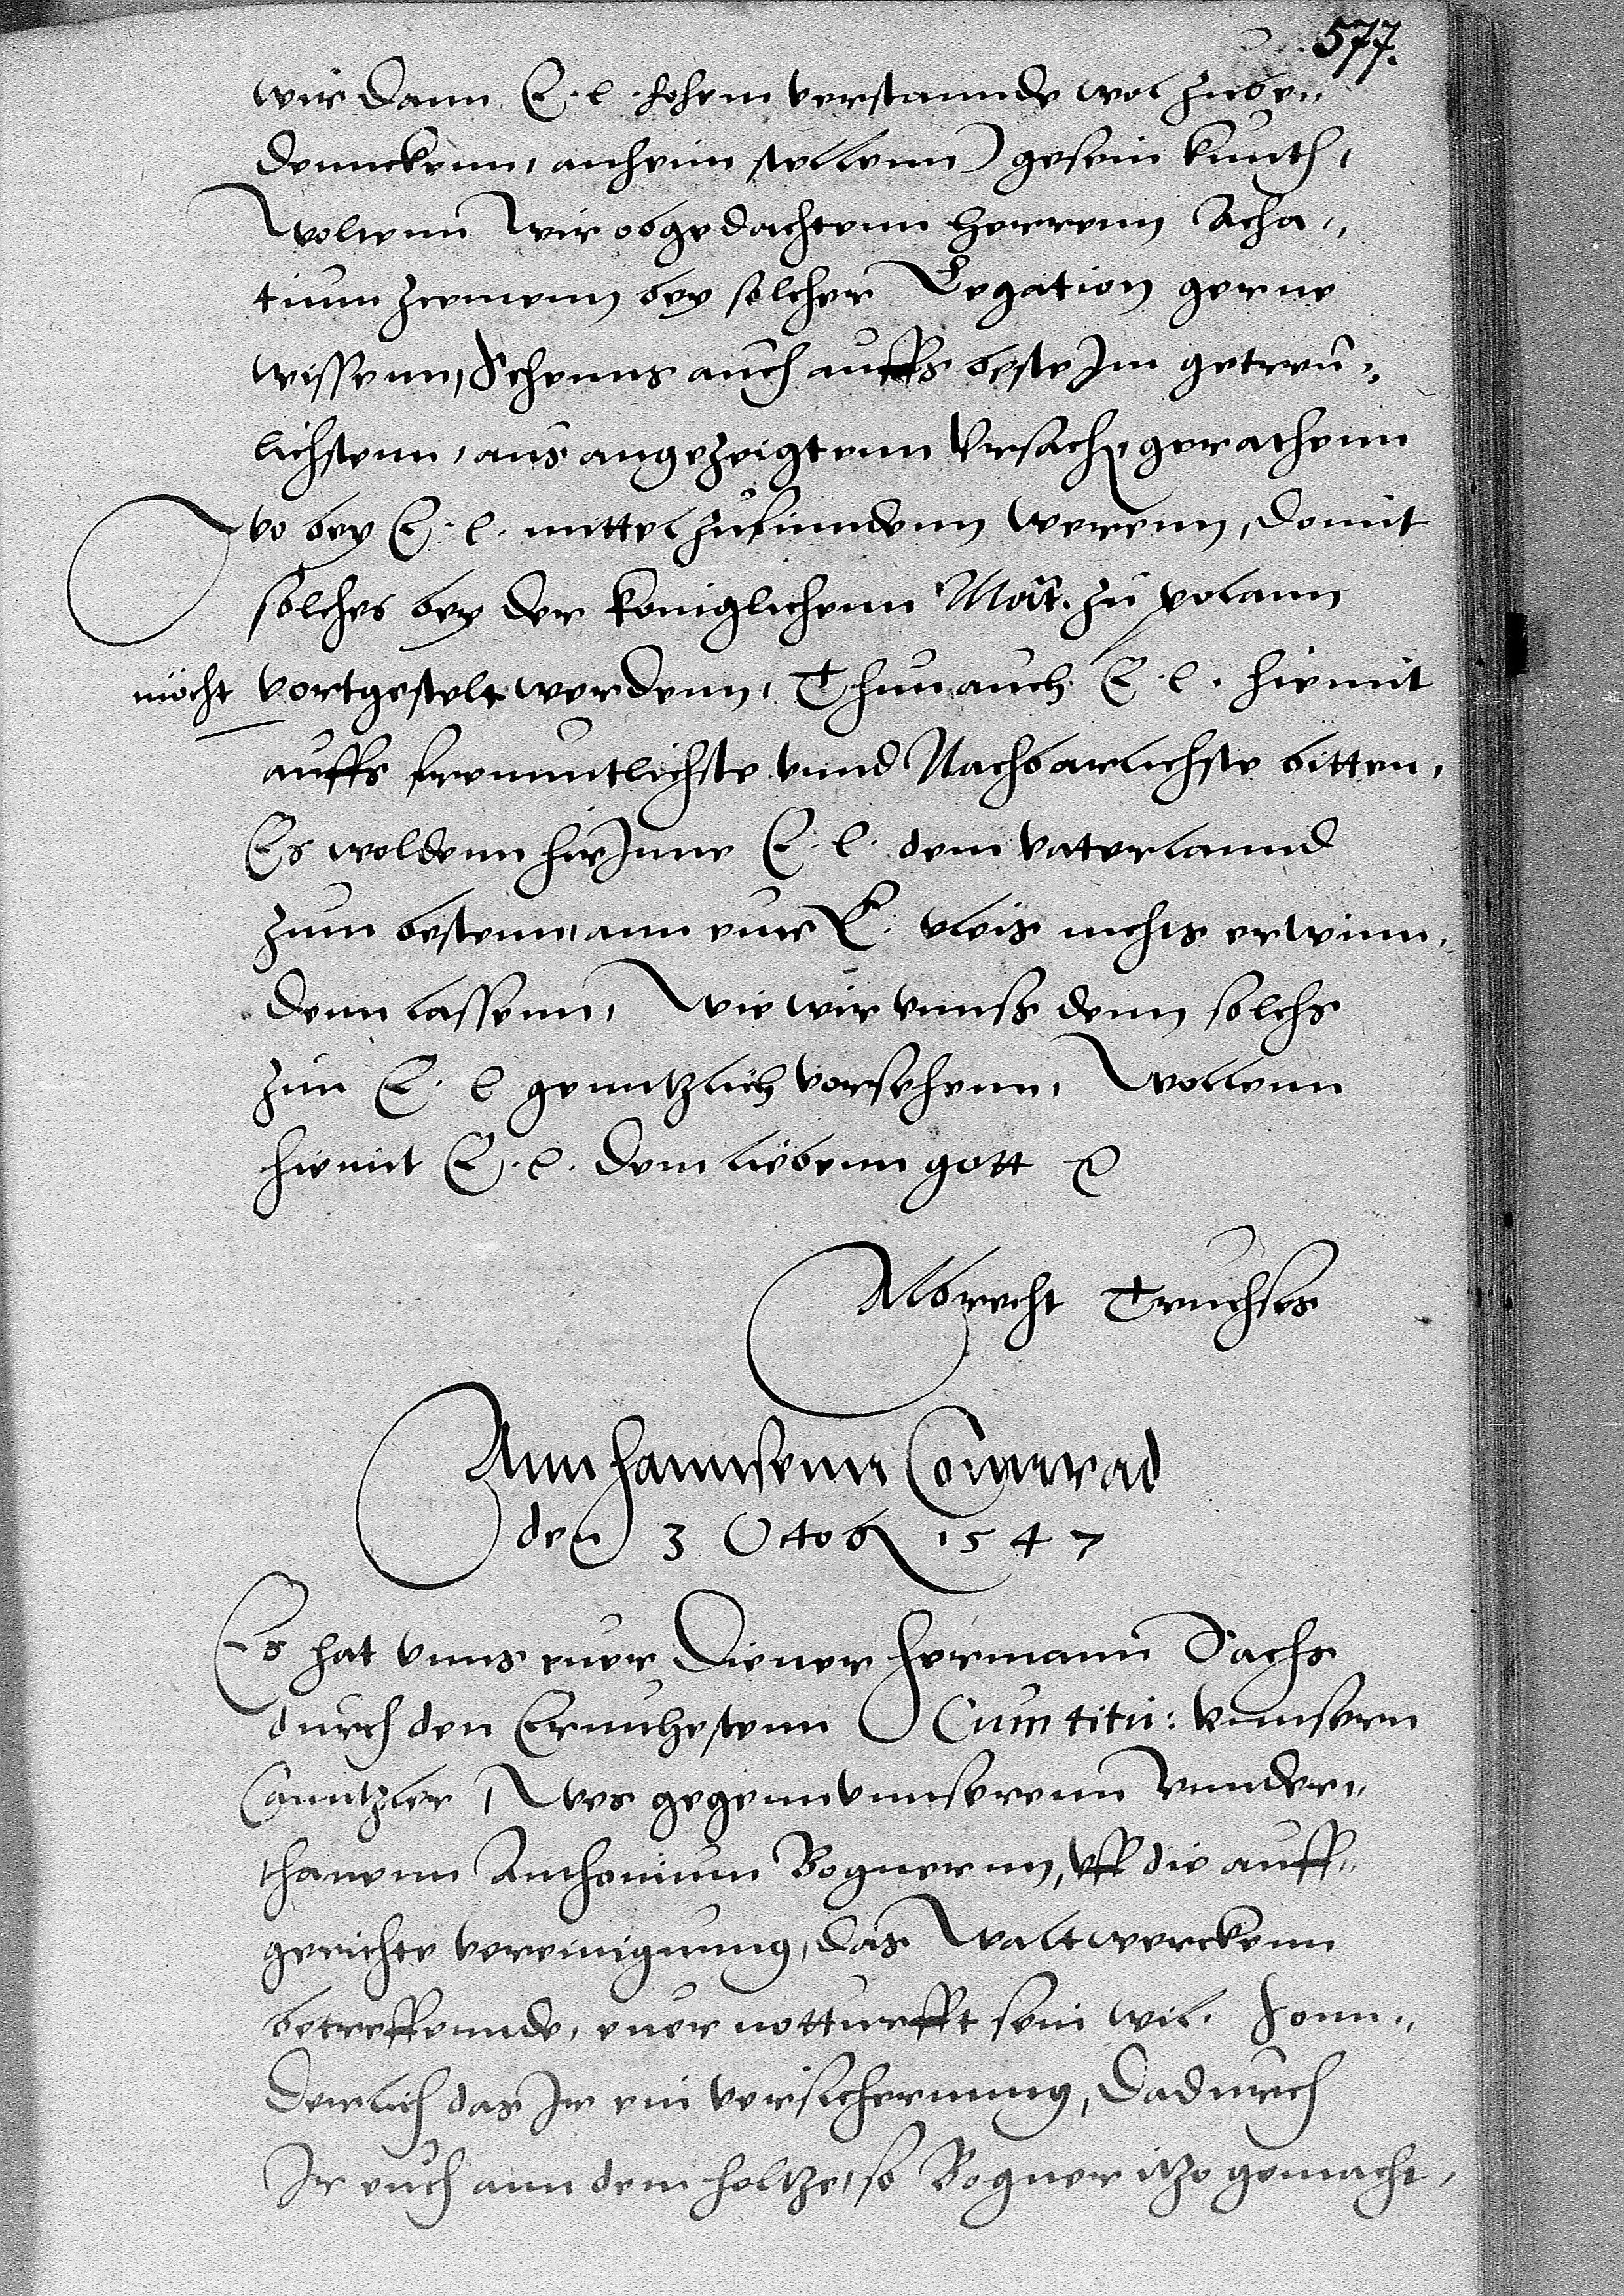 577.
wir dann E. l. hohem verstannde wol zube„
dennckenn, anheim stellenn) gesein kunth,
Wolenn wir obgedachtenn Herrenn Acha„
tium Zcemenn bey solcher Legation gerne
wissenn, Sehenns auch auffs beste Im getreu„
lichstenn, aus angezeigtenn Ursach, gerathenn
Wo bey E. l. mittel zufinndenn werenn, domit
solches bey der koniglichenn Mat. zu polann
möcht vortgestelt werdenn, Thun auch E. l. hiemit
auffs freuntlichste unnd Nachbarlichste bitten,
Es woldenn hirInne E. l. dem vaterlannd
zum bestenn, ann eure E. vleis nichts erwinn„
denn lassenn, Wie wir unnß denn solchs
zun E. l genntzlich vorsehenn, Wollenn
hiemit E. l. dem liebenn gott
Albrecht Truchses
Ann Hannsenn Connrad
den 3 Octob 1547
Es hat unns euer Diener Hermann Sachs
durch den Ernuhestenn Cum titu: unnsern
Canntzler, Wes gegenn unnserenn unnder„
thanenn Anthonium Bognerenn, uff die auff„
gerichte vereinigunng, das Waltwerckenn
betreffennde, euer notturfft sein wil. Sonn„
derlich das Ir ein versicherunng, Dadurch
Ir euch ann dem holtze, so Bogner itzo gemacht,